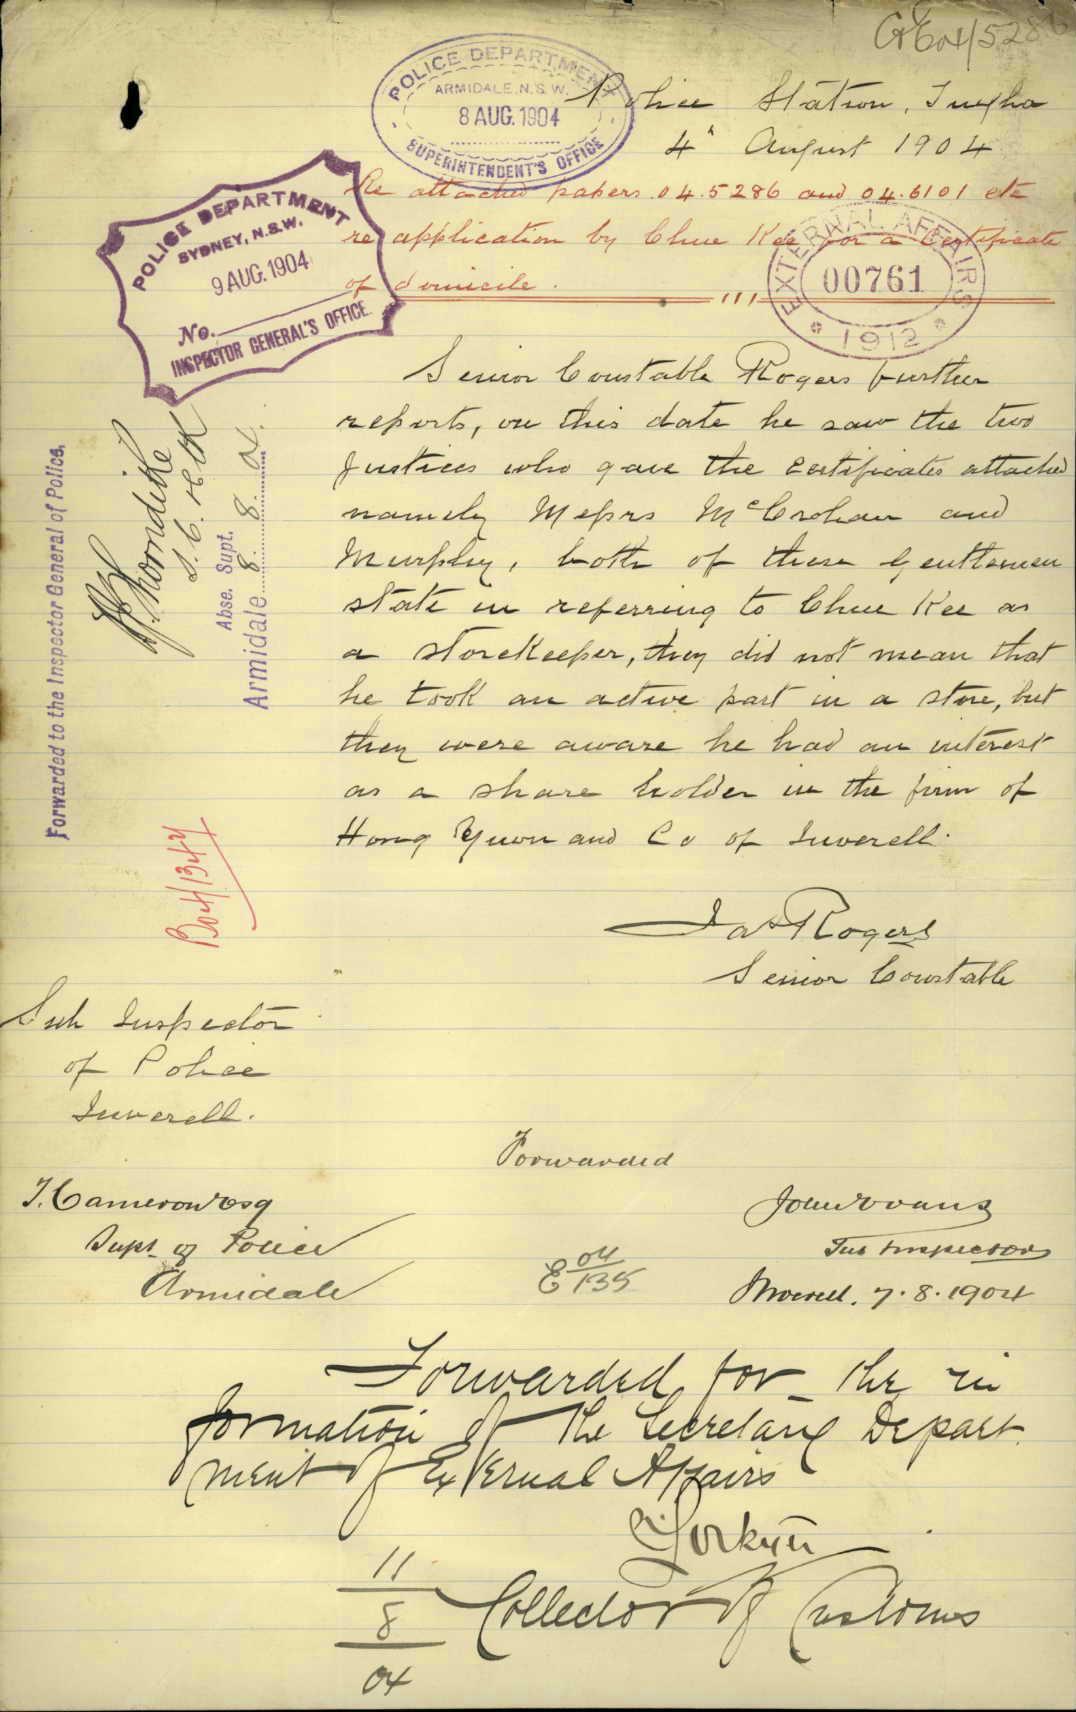 C&E 04/5286
POLICE DEPARTMENT
ARMIDALE, N.S.W.
8 AUG. 1904
SUPERINTENDENT'S OFFICE
Police Station, Tingha
4th August 1904
Re attached papers 04.5286 and 04.6101 etc
re application by Chue Kee for a Certificate
of domicile.
POLICE DEPARTMENT
SYDNEY, N.S.W.
9 AUG. 1904
No.
INSPECTOR GENERAL'S OFFICE.
EXTERNAL AFFAIRS
00761
1912
Senior Constable Rogers further
reports, on this date he saw the two
Justices who gave the Certificates attached
namely Messrs McCrohan and
Murphy, both of these Gentlemen
state in referring to Chue Kee as
a storekeeper, they did not mean that
he took an active part in a store, but
they were aware he had an interest
as a share holder in the firm of
Hong Yuon and Co of Inverell.
Jas Rogers
Senior Constable
Forwarded to the Inspector General of Police.
Abse. Supt.
Armidale 8. 8. 04.
B04/1347
Sub Inspector
of Police
Inverell.
Forwarded
John Evans
Sub Inspector
Inverell. 7.8.1904
T. Cameron Esq
Supt of Police
Armidale
E 04
135
Forwarded for the in
formation of the Secretary Depart
ment of External Affairs
Collector of Customs
11
8
04